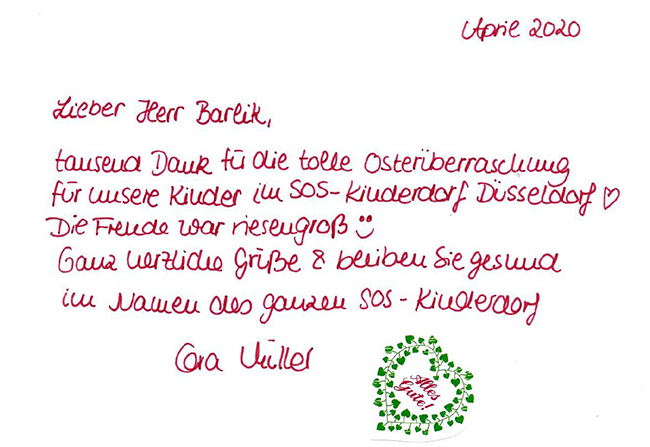 April 2020
Lieber Herr Barlik,
tausend Dank für die tolle Osterüberraschung
für unsere Kinder im SOS-Kinderdorf Düsseldorf ♡
Die Freude war riesengroß ☺
Ganz herzliche Grüße & bleiben Sie gesund
im Namen des ganzen SOS-Kinderdorf
Cara Müller
Alles
Gute!